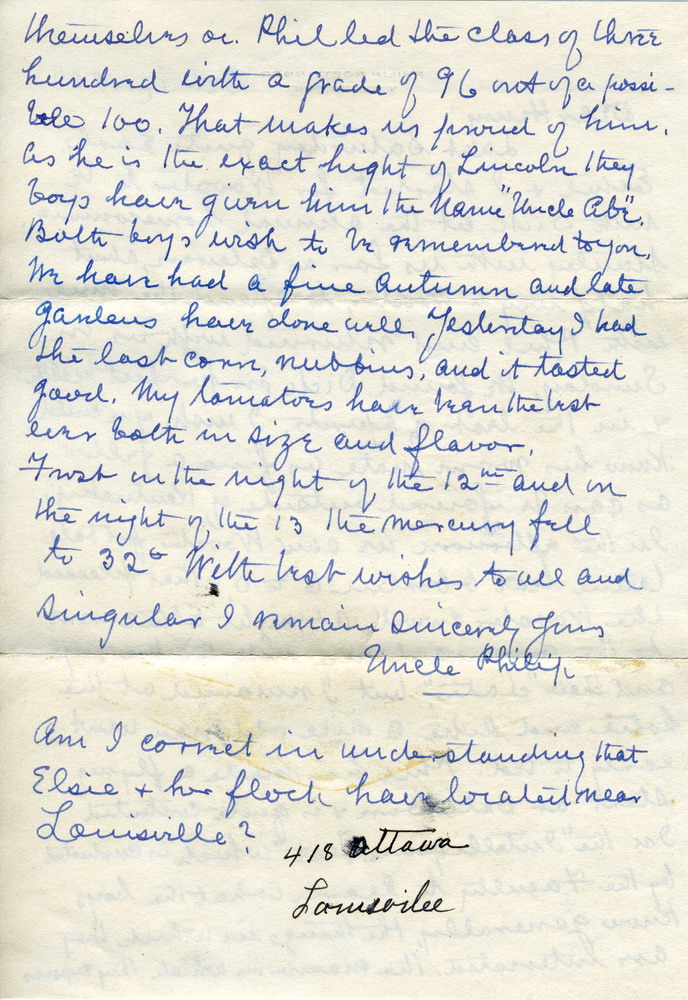 themselves on. Phil led the class of three
hundred with a grade of 96 out of a possi-
ble 100. That makes us proud of him.
As he is the exact hight of Lincoln they
boys have given him the name "Uncle Abe".
Both boys wish to be remembered to you.
We have had a fine Autumn and late
gardens have done well. Yesterday I had
the last corn, nubbins, and it tasted
good. My tomatoes have been the best
ever both in size and flavor.
Frost on the night of the 12th and on
the night of the 13 the mercury fell
to 32° With best wishes to all and
singular I remain Sincerely Yours
Uncle Philip
Am I correct in understanding that
Elsie + her flock have located near
Louisville?
418 Ottawa
Louisville